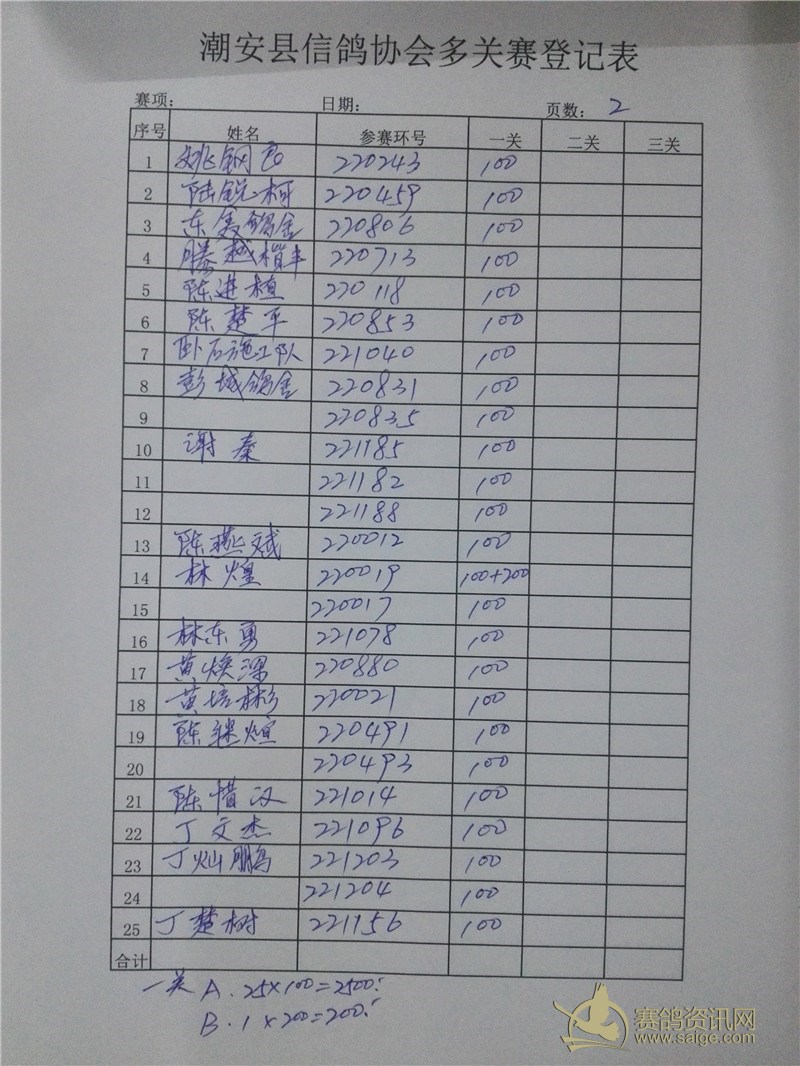 潮安县信鸽协会多关赛登记表
赛项: 日期: 页数: 2
序号 姓名 参赛环号 一关 二关 三关
1 姚钢 220243 100
2 陆锐柯 220459 100
3 东轰鸽舍 220806 100
4 滕越楷丰 220713 100
5 陈进植 220118 100
6 陈楚平 220853 100
7 卧石施工队 221040 100
8 彭城鸽舍 220831 100
9 220835 100
10 谢秦 221185 100
11 221182 100
12 221188 100
13 陈燕斌 220012 100
14 林煌 220019 100+200
15 220017 100
16 林东勇 221078 100
17 黄焕深 220880 100
18 黄培彬 220021 100
19 陈继煊 220491 100
20 220493 100
21 陈惜汉 221014 100
22 丁文杰 221096 100
23 丁灿鹏 221203 100
24 221204 100
25 丁楚树 221156 100
合计
一关 A. 25×100=2500.
B. 1×200=200.
赛鸽资讯网
www.saige.com